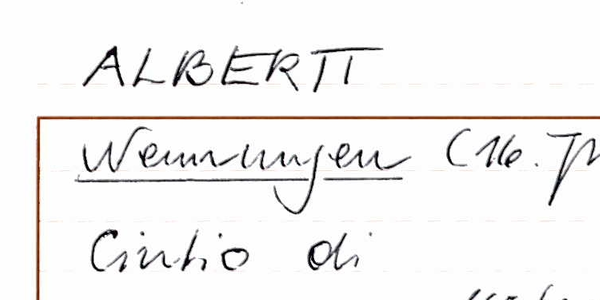 ALBERTI
Nennungen (16.
Cintio di